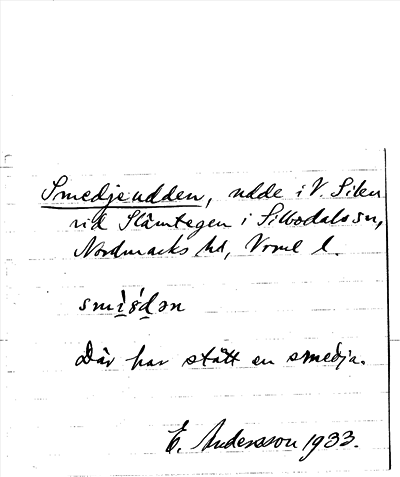 Smedjeudden, udde i V. Silen
vid Slämtegen i Silbodals sn,
Nordmarks hd, Vrml l.
Där har stått en smedja.
E. Andersson 1933.